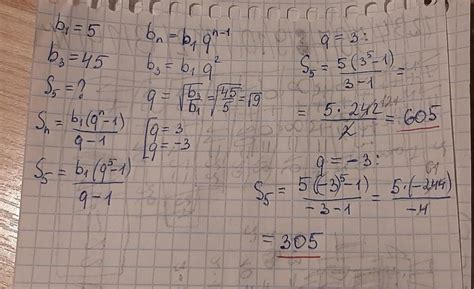 b₁=5
b₃=45
S₅=?
Sₙ=b₁(qⁿ-1)/q-1
S₅=b₁(q⁵-1)/q-1
bₙ=b₁qⁿ⁻¹
b₃=b₁q²
q=√b₃/b₁=√45/5=√9
[q=3
q=-3
q=3:
S₅=5(3⁵-1)/3-1=
=5·242 121/2=605
q=-3:
S₅=5(-3)⁵-1)/-3-1=5·(-244) 61/-4
=305